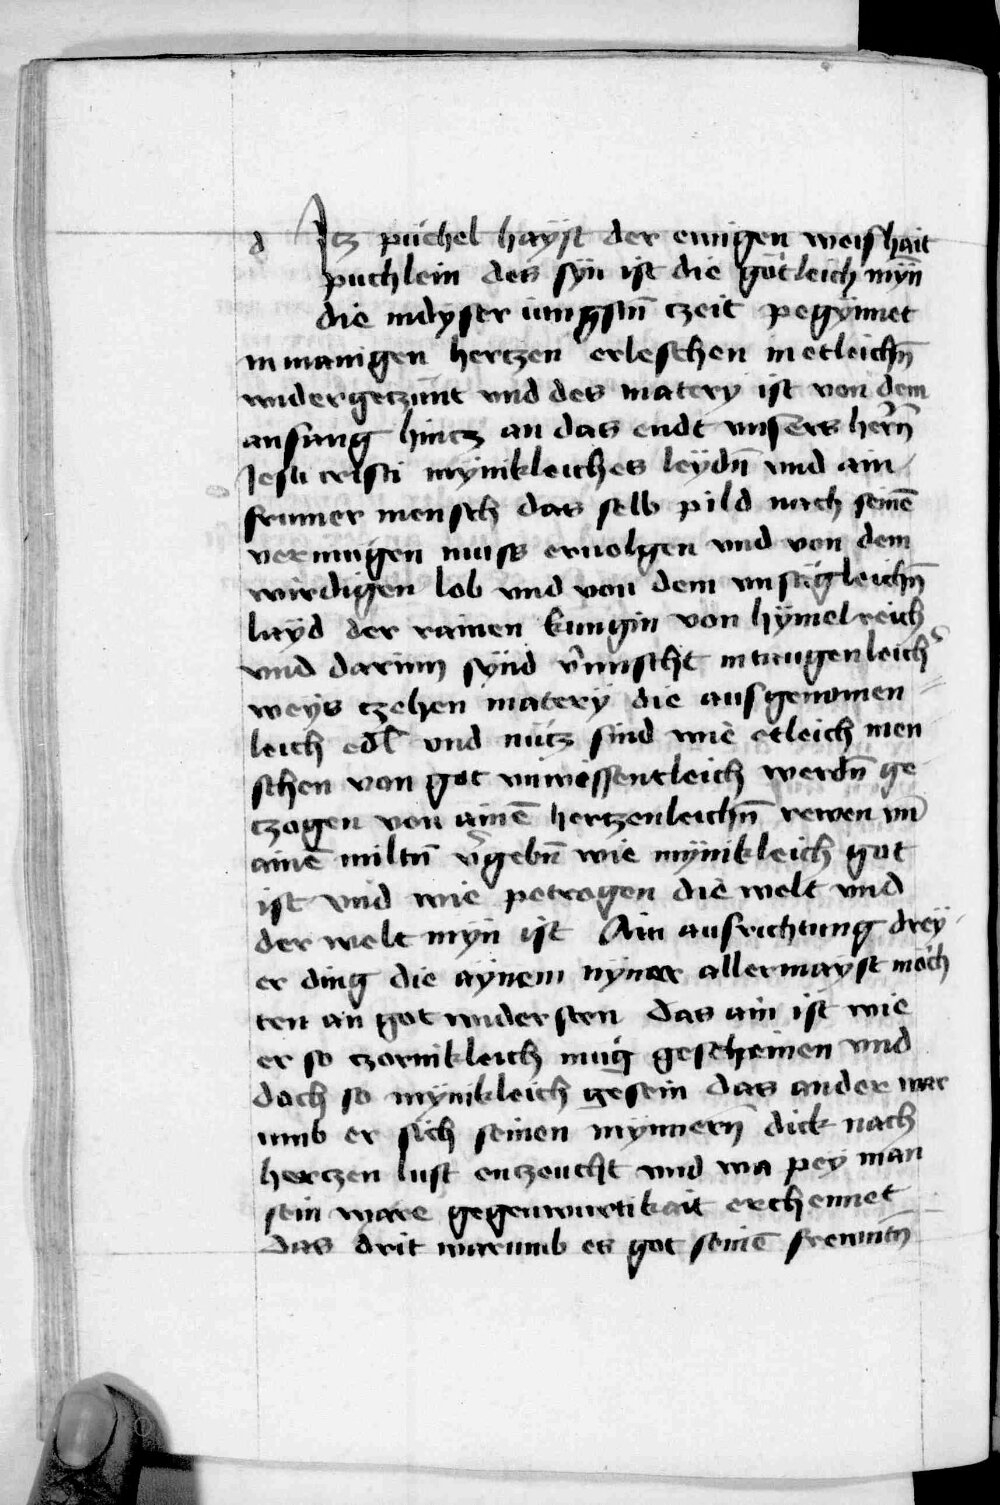 d Itz púchel haÿst der ewigen weishait
puchlein des sÿn ist die götleich mÿn̄
die in dÿser iungstn̄ czeit pegÿnnet
in manigen hertzen erleschen in etleichn̄
widergeczúnt vnd des matery ist von dem
anfang hincz an das endt vnsers herꝛn̄
Jesu cristi mÿnikleiches leÿdn̄ vnd ain
frumer mensch das selb pild nach seinē
vermugen muss eruolgen vnd von dem
wirdigen lob vnd von dem vnságleichn̄
laÿd der rainen kunigin von hÿmelreich
vnd darinn sÿnd v̾mischt in taugenleich̾
weÿs czehen matery die ausgenomen
leich edl̄ vnd nücz sind wie etleich men
schen von got vnwissentleich werdn̄ ge
czogen von ainē hertzenleichn̄ rewen vn̄
ainē miltn̄ v̾gebn̄ wie mÿnikleich got
ist vnd wie petrogen die welt vnd
der welt mÿn ist Ain ausrichtung dreÿ
er ding die aÿnem mÿner allermayst möch
ten an got widersten das ain ist wie
er so czornikleich mug gescheinen vnd
doch so mÿnikleich gesein das ander war
umb er sich seinen mÿnnern̄ dick nach
hertzen lust enczeucht vnd wa peÿ man
sein ware gegenwurtikait erchennet
das drit warumb es got seinē frewntn̄